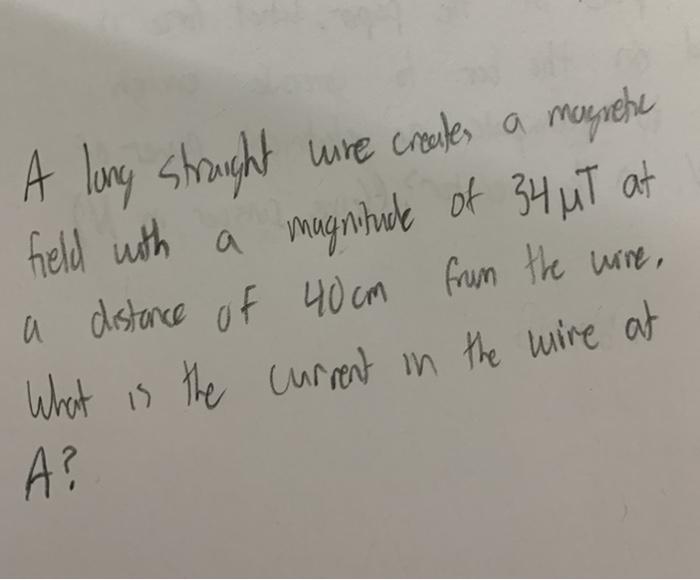 A long straight wire creates a magnetic
field with a magnitude of 34 μT at
a distance of 40cm from the wire.
What is the current in the wire at
A?